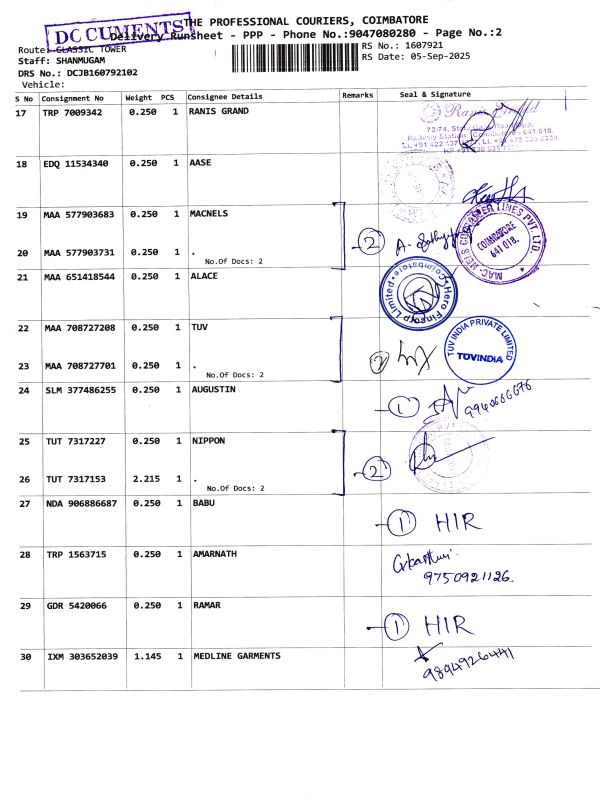 DOCUMENTS
THE PROFESSIONAL COURIERS, COIMBATORE
Delivery Runsheet - PPP - Phone No.:9047080280 - Page No.:2
Route: CLASSIC TOWER
RS No.: 1607921
Staff: SHANMUGAM
RS Date: 05-Sep-2025
DRS No.: DCJB160792102
Vehicle:
S No Consignment No Weight PCS Consignee Details Remarks Seal & Signature
17 TRP 7009342 0.250 1 RANIS GRAND
18 EDQ 11534340 0.250 1 AASE
19 MAA 577903683 0.250 1 MACNELS
2
MAC-NELS CONTAINER LINES PVT. LTD.
COIMBATORE
641 018.
20 MAA 577903731 0.250 1 .
No.Of Docs: 2
21 MAA 651418544 0.250 1 ALACE
Hero Fincorp Limited
Coimbatore
22 MAA 708727208 0.250 1 TUV
TUV INDIA PRIVATE LIMITED
TUVINDIA
2
23 MAA 708727701 0.250 1 .
No.Of Docs: 2
24 SLM 377486255 0.250 1 AUGUSTIN
1
25 TUT 7317227 0.250 1 NIPPON
2
26 TUT 7317153 2.215 1 .
No.Of Docs: 2
27 NDA 906886687 0.250 1 BABU
1 HIR
28 TRP 1563715 0.250 1 AMARNATH
9750921126.
29 GDR 5420066 0.250 1 RAMAR
1 HIR
30 IXM 303652039 1.145 1 MEDLINE GARMENTS
9894926441